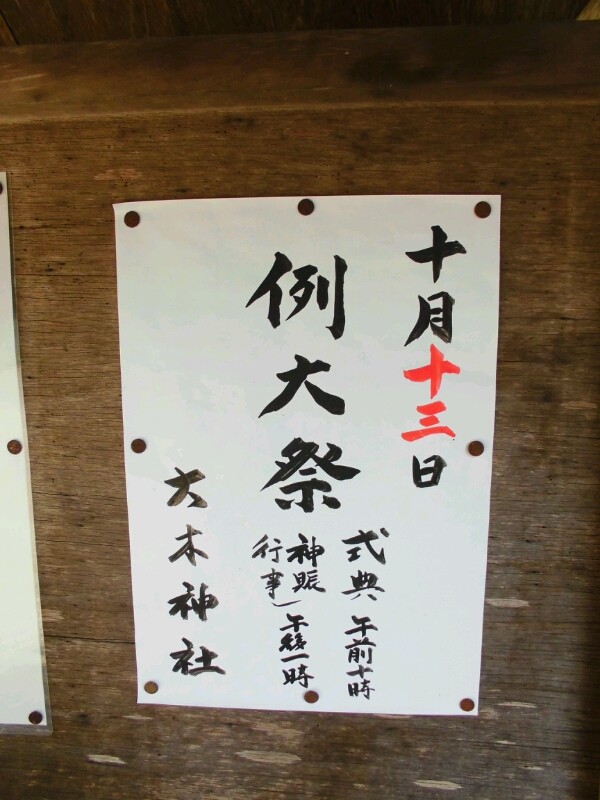 十月十三日
例大祭
式典 午前十時
神賑
行事 午後一時
大木神社